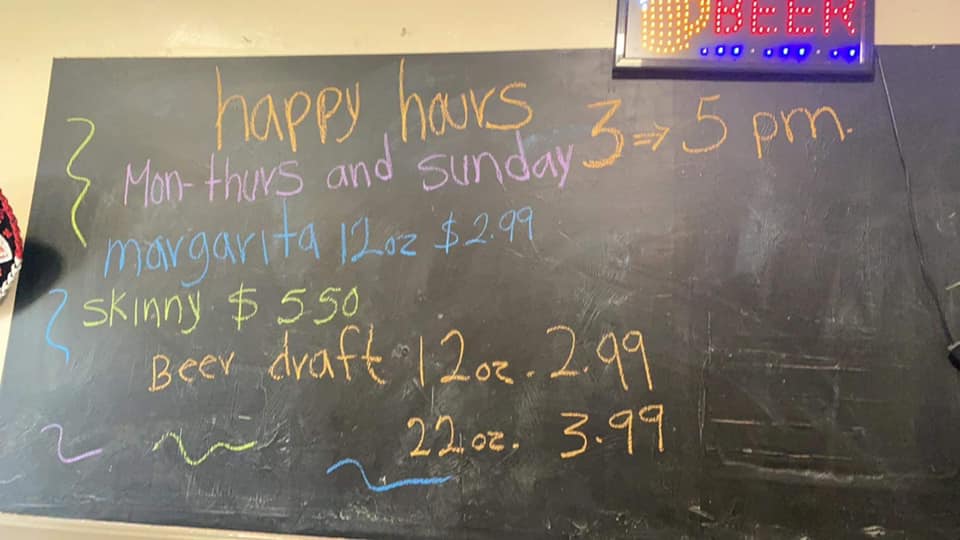 BEER
happy hours 3⇒5 pm.
Mon-thurs and sunday
margarita 12oz $2.99
skinny $550
Beer draft 12oz. 2.99
22oz. 3.99